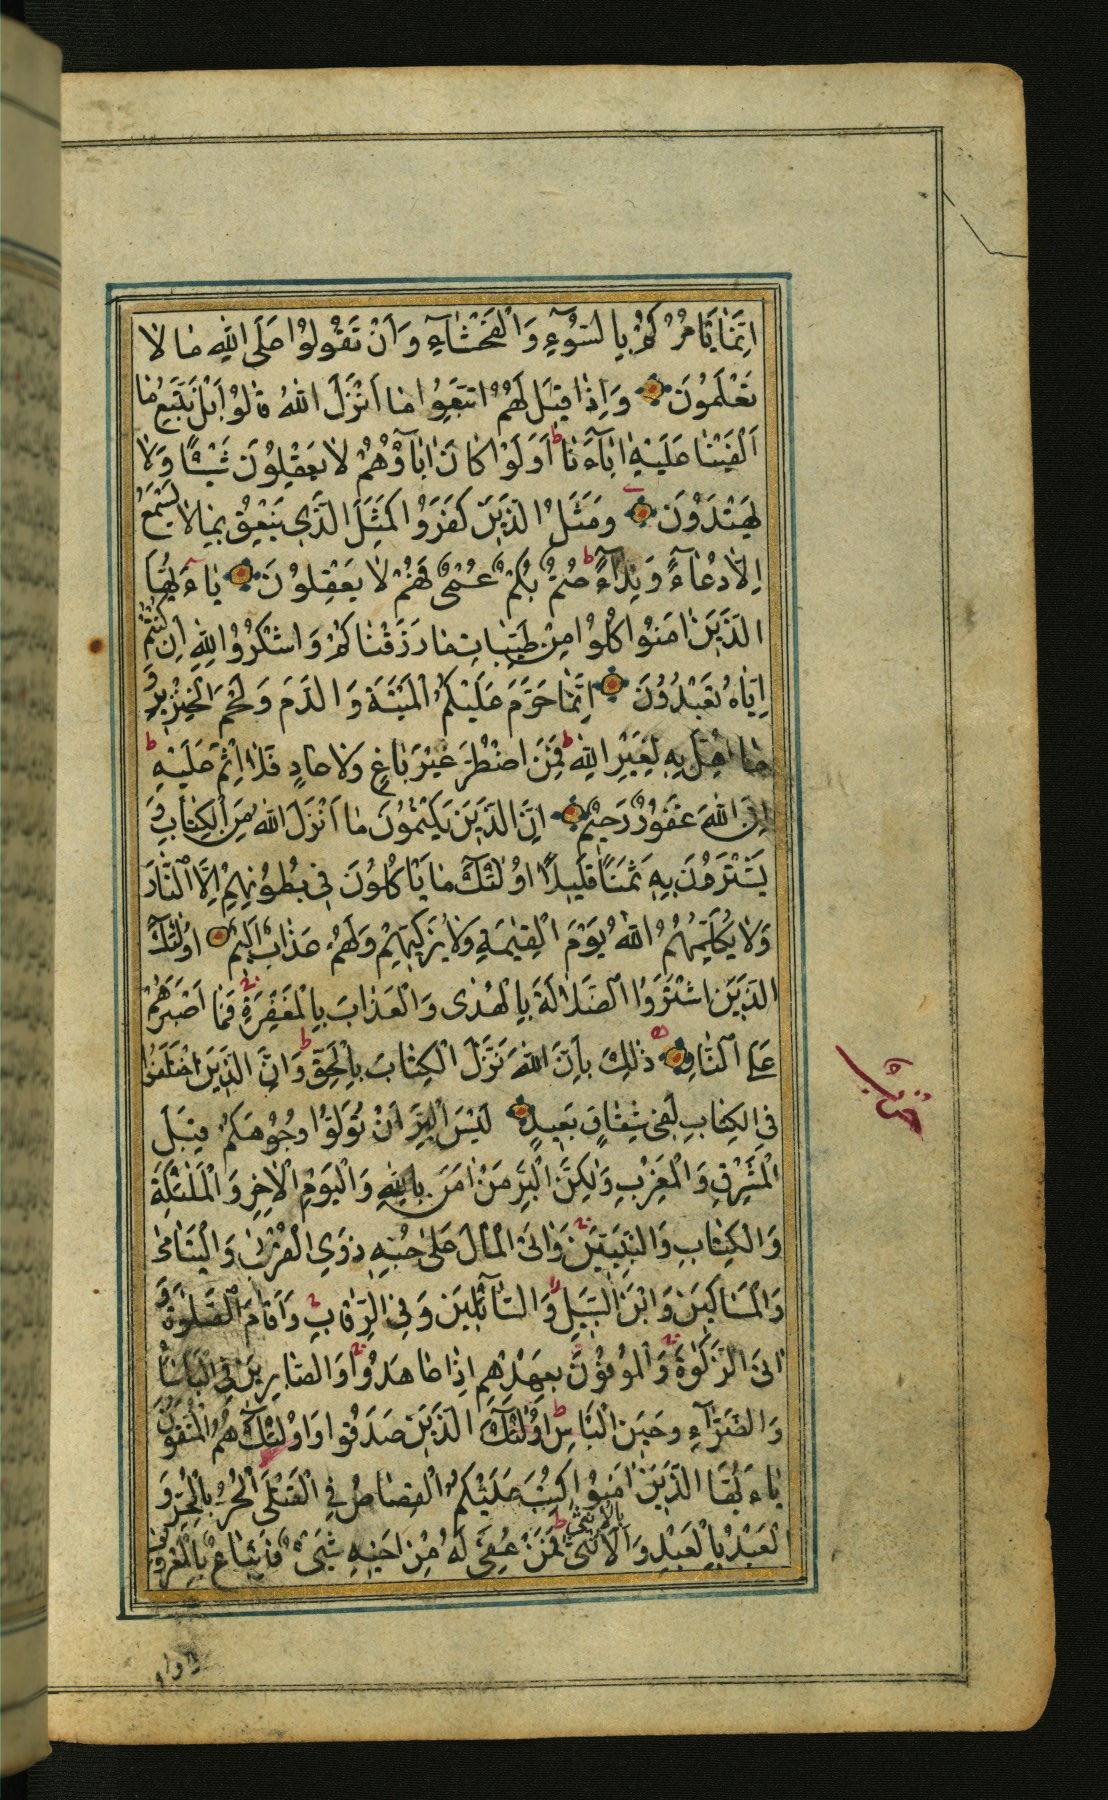 اِنَّمٰا يَأْمُرُكُمْ بِالسُّوۤءِ وَالْفَحْشٰاۤءِ وَاَنْ تَقُولُوْا عَلَى اللّٰهِ مٰا لٰا
تَعْلَمُوْنَ وَاِذٰا قِيْلَ لَهُمُ اتَّبِعُوا مٰا اَنْزَلَ اللّٰهُ قٰالُوْا بَلْ نَتَّبِعُ مٰا
اَلْفَيْنٰا عَلَيْهِ اٰبٰاۤءَنٰا ط اَوَلَوْ كٰانَ اٰبٰاۤؤُهُمْ لٰا يَعْقِلُوْنَ شَيْئًا وَلٰا
يَهْتَدُوْنَ وَمَثَلُ الَّذِيْنَ كَفَرُوْا كَمَثَلِ الَّذِي يَنْعِقُ بِمٰا لٰا يَسْمَعُ
اِلّٰا دُعٰاۤءً وَنِدٰاۤءً ط صُمٌّ بُكْمٌ عُمْيٌ فَهُمْ لٰا يَعْقِلُوْنَ يٰاۤءَيُّهَا
الَّذِيْنَ اٰمَنُوا كُلُوْا مِنْ طَيِّبٰاتِ مٰا رَزَقْنٰاكُمْ وَاشْكُرُوْا لِلّٰهِ اِنْ كُنْتُمْ
اِيّٰاهُ تَعْبُدُوْنَ اِنَّمٰا حَرَّمَ عَلَيْكُمُ الْمَيْتَةَ وَالدَّمَ وَلَحْمَ الْخِنْزِيْرِ وَ
مٰا اُهِلَّ بِهِ لِغَيْرِ اللّٰهِ ط فَمَنِ اضْطُرَّ غَيْرَ بٰاغٍ وَلٰا عٰادٍ فَلٰا اِثْمَ عَلَيْهِ ط
اِنَّ اللّٰهَ غَفُوْرٌ رَحِيْمٌ اِنَّ الَّذِيْنَ يَكْتُمُوْنَ مٰا اَنْزَلَ اللّٰهُ مِنَ الْكِتٰابِ وَ
يَشْتَرُوْنَ بِهِ ثَمَنًا قَلِيْلًا اُولٰئِكَ مٰا يَأْكُلُوْنَ فِي بُطُوْنِهِمْ اِلَّا النّٰارَ
وَلٰا يُكَلِّمُهُمُ اللّٰهُ يَوْمَ الْقِيٰمَةِ وَلٰا يُزَكِّيْهِمْ وَلَهُمْ عَذٰابٌ اَلِيْمٌ اُولٰئِكَ
الَّذِيْنَ اشْتَرَوُا الضَّلٰالَةَ بِالْهُدٰى وَالْعَذٰابَ بِالْمَغْفِرَةِ فَمٰا اَصْبَرَهُمْ
عَلَى النّٰارِ ذٰلِكَ بِاَنَّ اللّٰهَ نَزَّلَ الْكِتٰابَ بِالْحَقِّ ط وَاِنَّ الَّذِيْنَ اخْتَلَفُوْا
فِي الْكِتٰابِ لَفِي شِقٰاقٍ بَعِيْدٍ لَيْسَ الْبِرَّ اَنْ تُوَلُّوْا وُجُوْهَكُمْ قِبَلَ
الْمَشْرِقِ وَالْمَغْرِبِ وَلٰكِنَّ الْبِرَّ مَنْ اٰمَنَ بِاللّٰهِ وَالْيَوْمِ الْاٰخِرِ وَالْمَلٰئِكَةِ
وَالْكِتٰابِ وَالنَّبِيِّيْنَ وَاٰتَى الْمٰالَ عَلٰى حُبِّهِ ذَوِي الْقُرْبٰى وَالْيَتٰامٰى
وَالْمَسٰاكِيْنَ وَابْنَ السَّبِيْلِ وَالسّٰاۤئِلِيْنَ وَفِي الرِّقٰابِ وَاَقٰامَ الصَّلٰوةَ وَ
اٰتَى الزَّكٰوةَ وَالْمُوْفُوْنَ بِعَهْدِهِمْ اِذٰا عٰاهَدُوْا وَالصّٰابِرِيْنَ فِي الْبَأْسٰاۤءِ
وَالضَّرّٰاۤءِ وَحِيْنَ الْبَأْسِ ط اُولٰئِكَ الَّذِيْنَ صَدَقُوا وَاُولٰئِكَ هُمُ الْمُتَّقُوْنَ
يٰاۤءَيُّهَا الَّذِيْنَ اٰمَنُوْا كُتِبَ عَلَيْكُمُ الْقِصٰاصُ فِي الْقَتْلَى الْحُرُّ بِالْحُرِّ وَ
الْعَبْدُ بِالْعَبْدِ وَالْاُنْثٰى بِالْاُنْثٰى ط فَمَنْ عُفِيَ لَهُ مِنْ اَخِيْهِ شَيْءٌ فَاتِّبٰاعٌ بِالْمَعْرُوْفِ
حزب